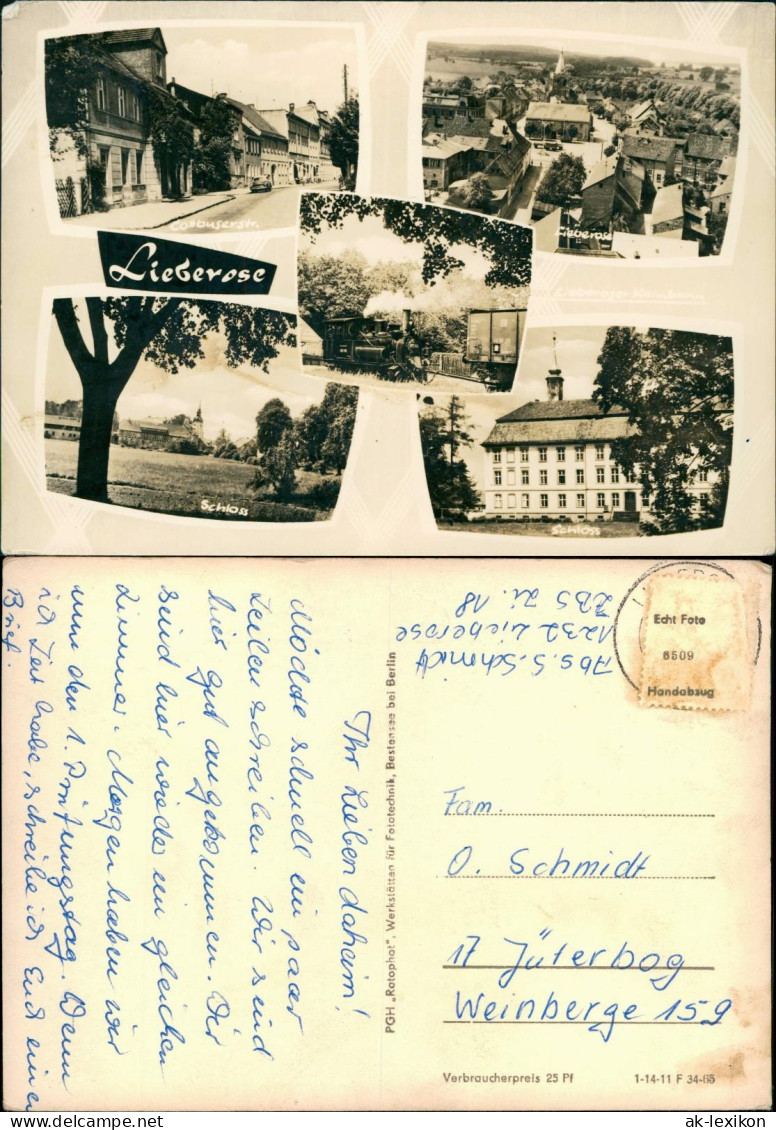 Cottbuserstr.
Lieberose
Lieberose
Schloss
Schloss
Ihr lieben daheim!
Möchte schnell ein paar
Zeilen schreiben. Wir sind
hier gut angekommen. Wir
sind hier wieder im gleichen
Zimmer. Morgen haben wir
nun den 1. Prüfungstag. Wenn
ich Zeit habe, schreibe ich Euch einen
Brief.
PGH „Rotophot", Werkstätten für Fototechnik, Bestensee bei Berlin
Abs. S. Schmidt
1232 Lieberose
ZBS Zi. 18
Echt Foto
6509
Handabzug
Fam.
O. Schmidt
17 Jüterbog
Weinberge 159
Verbraucherpreis 25 Pf
1-14-11 F 34-65
ak-ansichtskarten.de
ak-lexikon